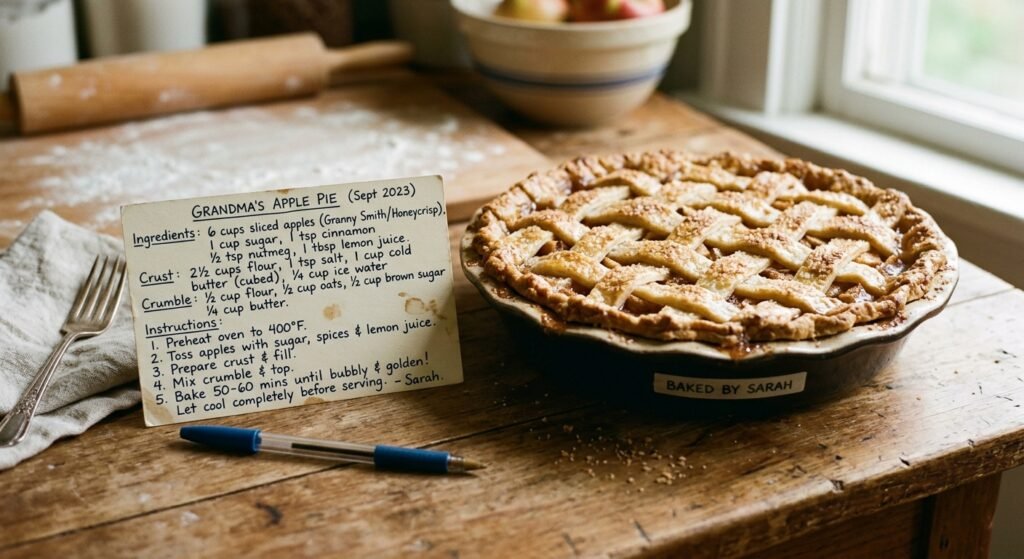 GRANDMA'S APPLE PIE (Sept 2023)
Ingredients: 6 cups sliced apples (Granny Smith/Honeycrisp).
1 cup sugar, 1 tsp cinnamon
½ tsp nutmeg, 1 tbsp lemon juice.
Crust: 2½ cups flour, 1 tsp salt, 1 cup cold
butter (cubed), ¼ cup ice water
Crumble: ½ cup flour, ½ cup oats, ½ cup brown sugar
¼ cup butter.
Instructions:
1. Preheat oven to 400°F.
2. Toss apples with sugar, spices & lemon juice.
3. Prepare crust & fill.
4. Mix crumble & top.
5. Bake 50-60 mins until bubbly & golden!
Let cool completely before serving. - Sarah.
BAKED BY SARAH